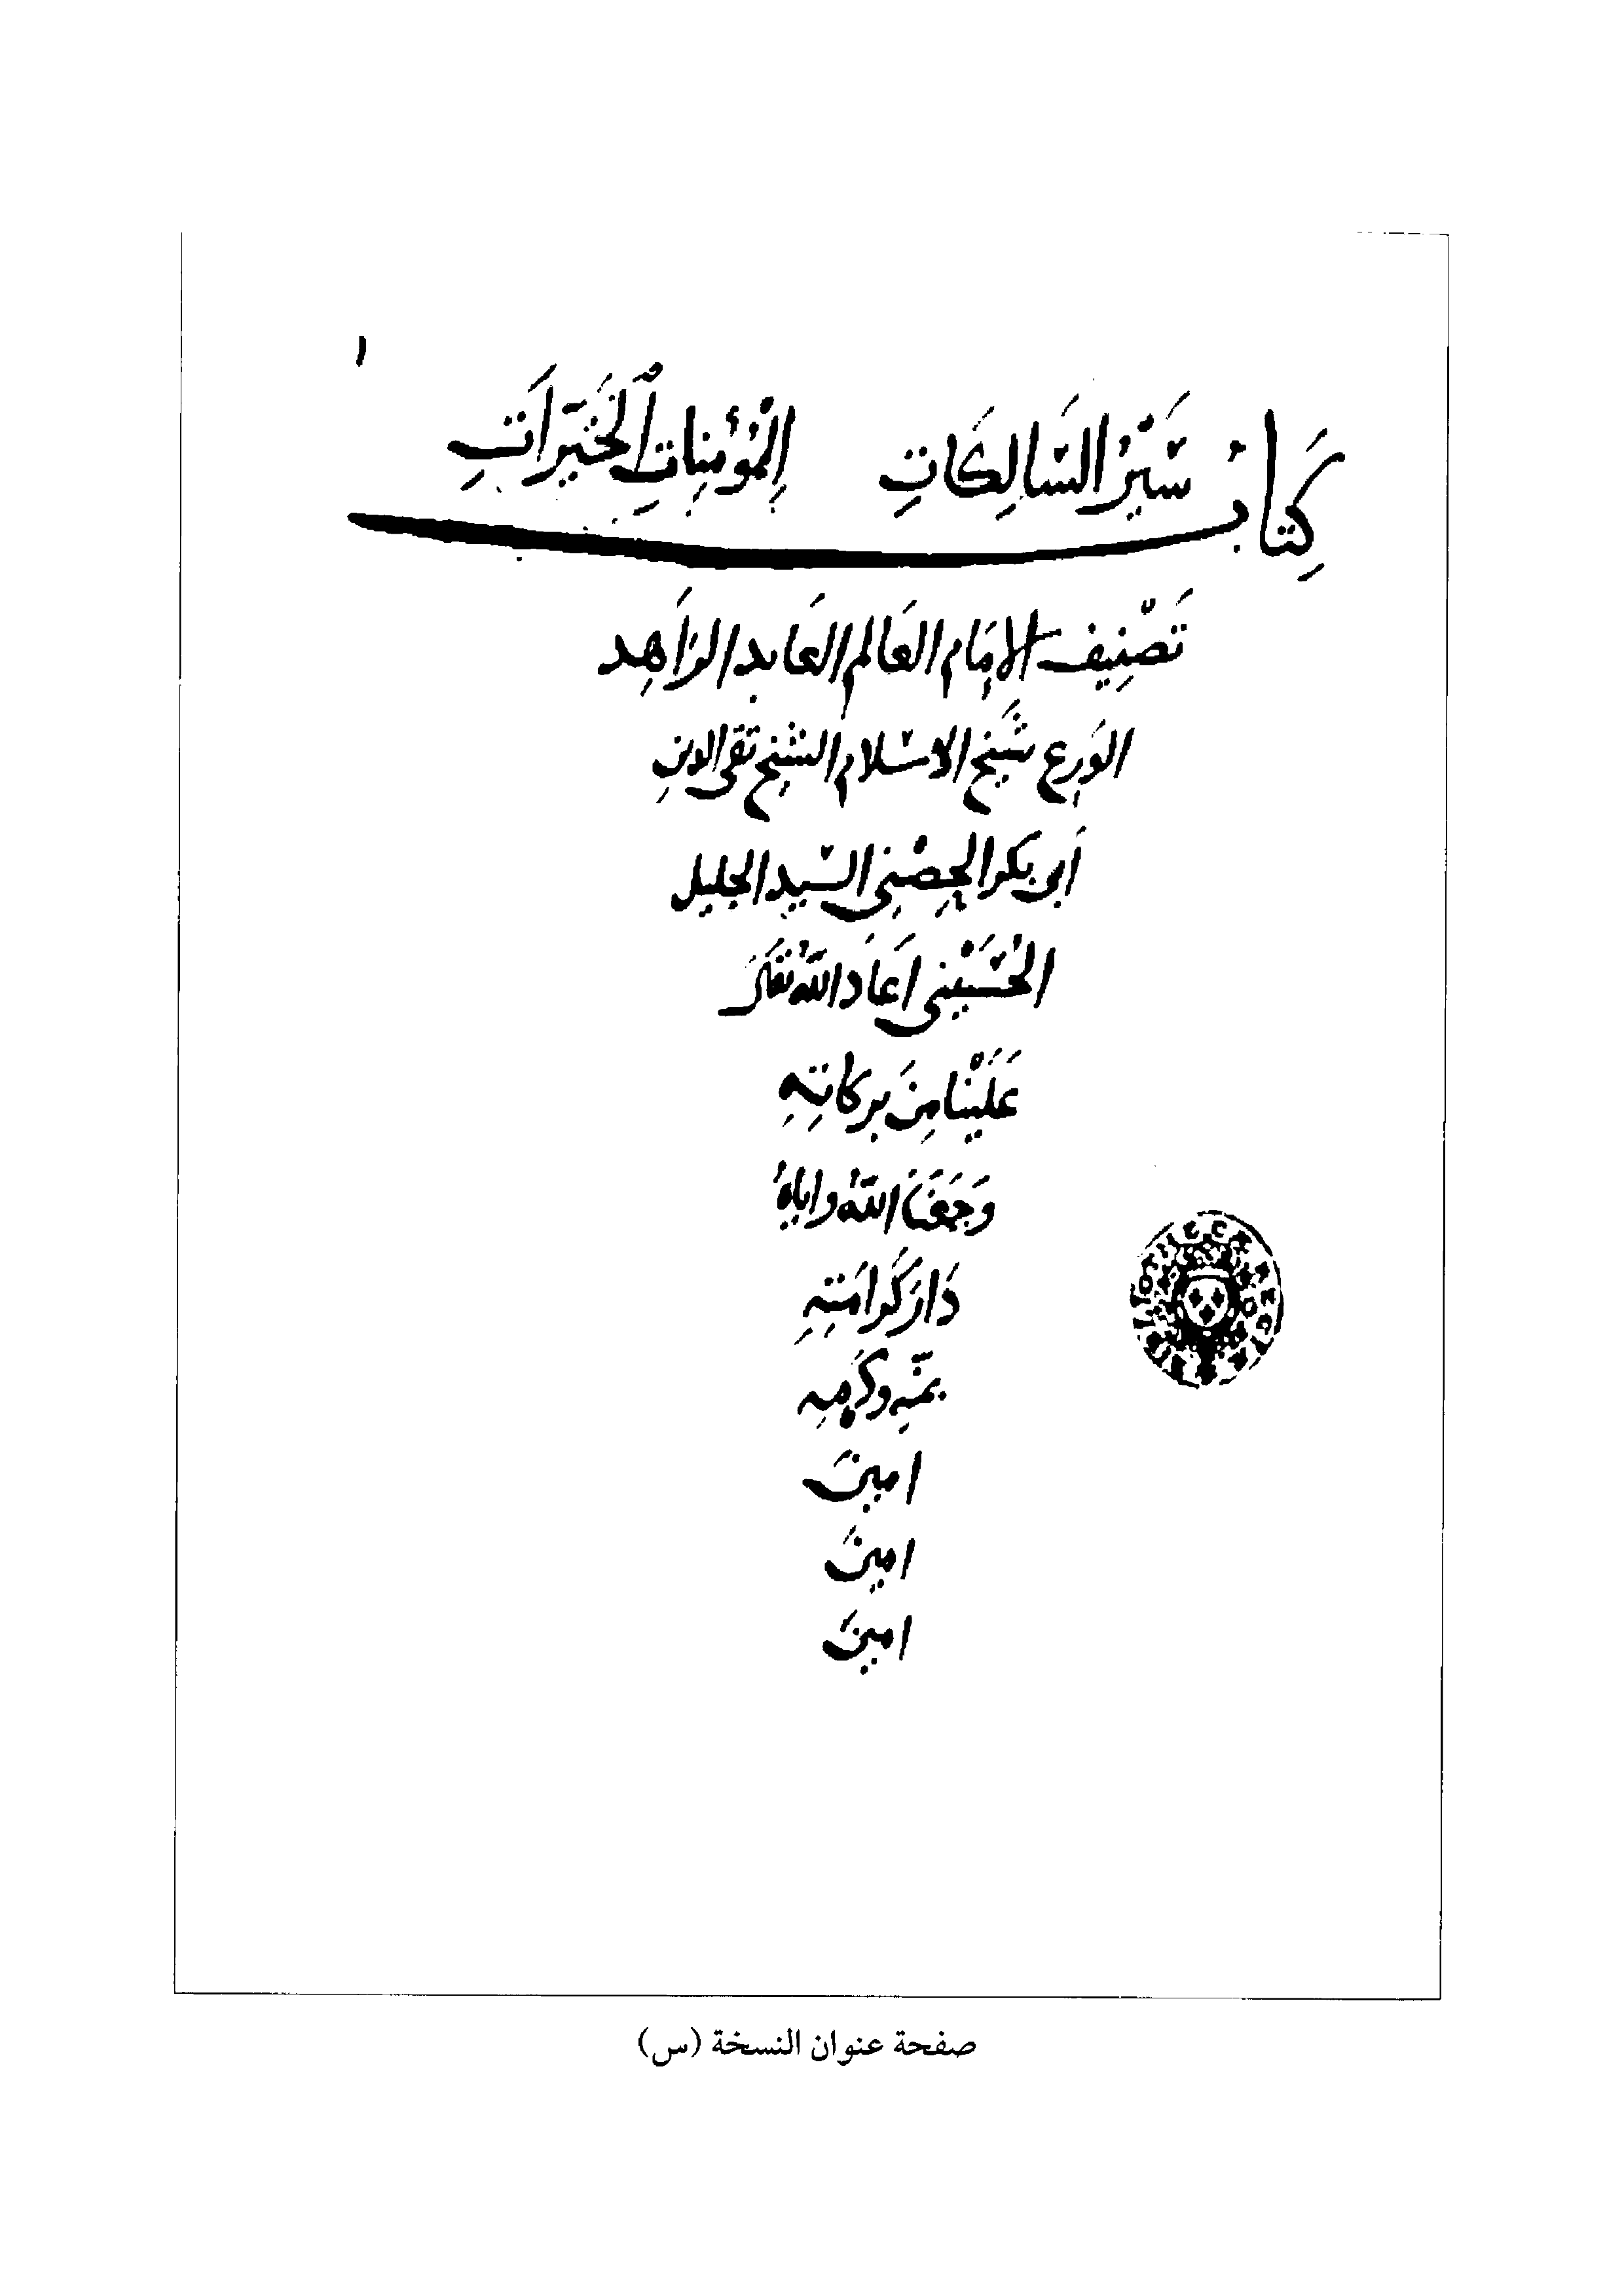 ١
كِتَابُ سَيْرُ السَّالِكَاتِ الْمُؤْمِنَاتِ الْخَيِّرَاتِ
تَصْنِيف الامَام العَالم العَابد الزَاهِد
الوَرِع شَيخ الاسلام الشيخ تقى الدينِ
أبى بكر الحِصْنِى السيد الجليل
الحُسَيْنِى اعَادَ اللهُ تَعَالَى
عَلَيْنَا مِنَ بركاتِهِ
وَجَمَعَنَا اللهُ واياهُ
دَارَ كَرَامَتِهِ
بمنّهِ وكَرمِهِ
امينَ
امينَ
امينَ
صفحة عنوان النسخة (س)